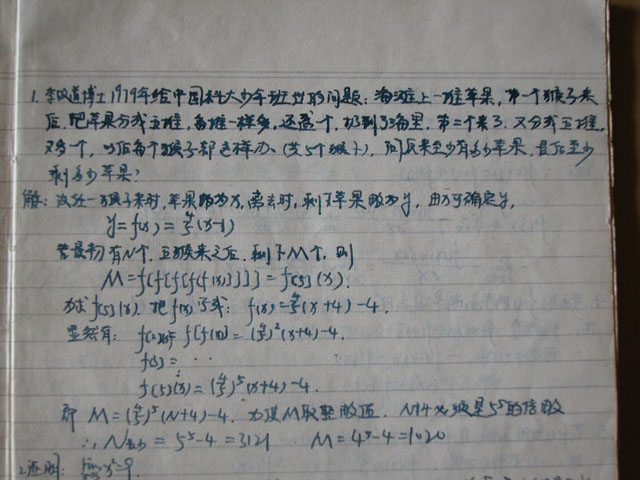 1. 李政道博士1979年给中国科大少年班出的问题：海滩上一堆苹果，第一个猴子来
后，把苹果分成五堆，每堆一样多，还多一个，扔到了海里，第二个来了，又分成五堆，
又多一个，以后每个猴子都这样办（共5个猴子），问原来至少有多少苹果，最后至少
剩多少苹果？
解：设任一猴子来时，苹果数为x，离去时，剩下苹果数为y，由x可确定y，
y=f(x)=4/5(x-1)
若最初有N个，五猴来之后，剩下M个，则
M=f[f{f[f(f(x))]}]=f(5)(x).
为求f(5)(x)，把f(x)写成：f(x)=4/5(x+4)-4.
显然有：f(2)(x)=f[f(x)]=(4/5)²(x+4)-4.
f(3)= . . .
f(5)(x)=(4/5)⁵(x+4)-4.
即 M=(4/5)⁵(N+4)-4. 为使M取整数值，N+4必须是5⁵的倍数
∴N最小=5⁵-4=3121 M=4⁵-4=1020
2. 证明：lim x²=9.